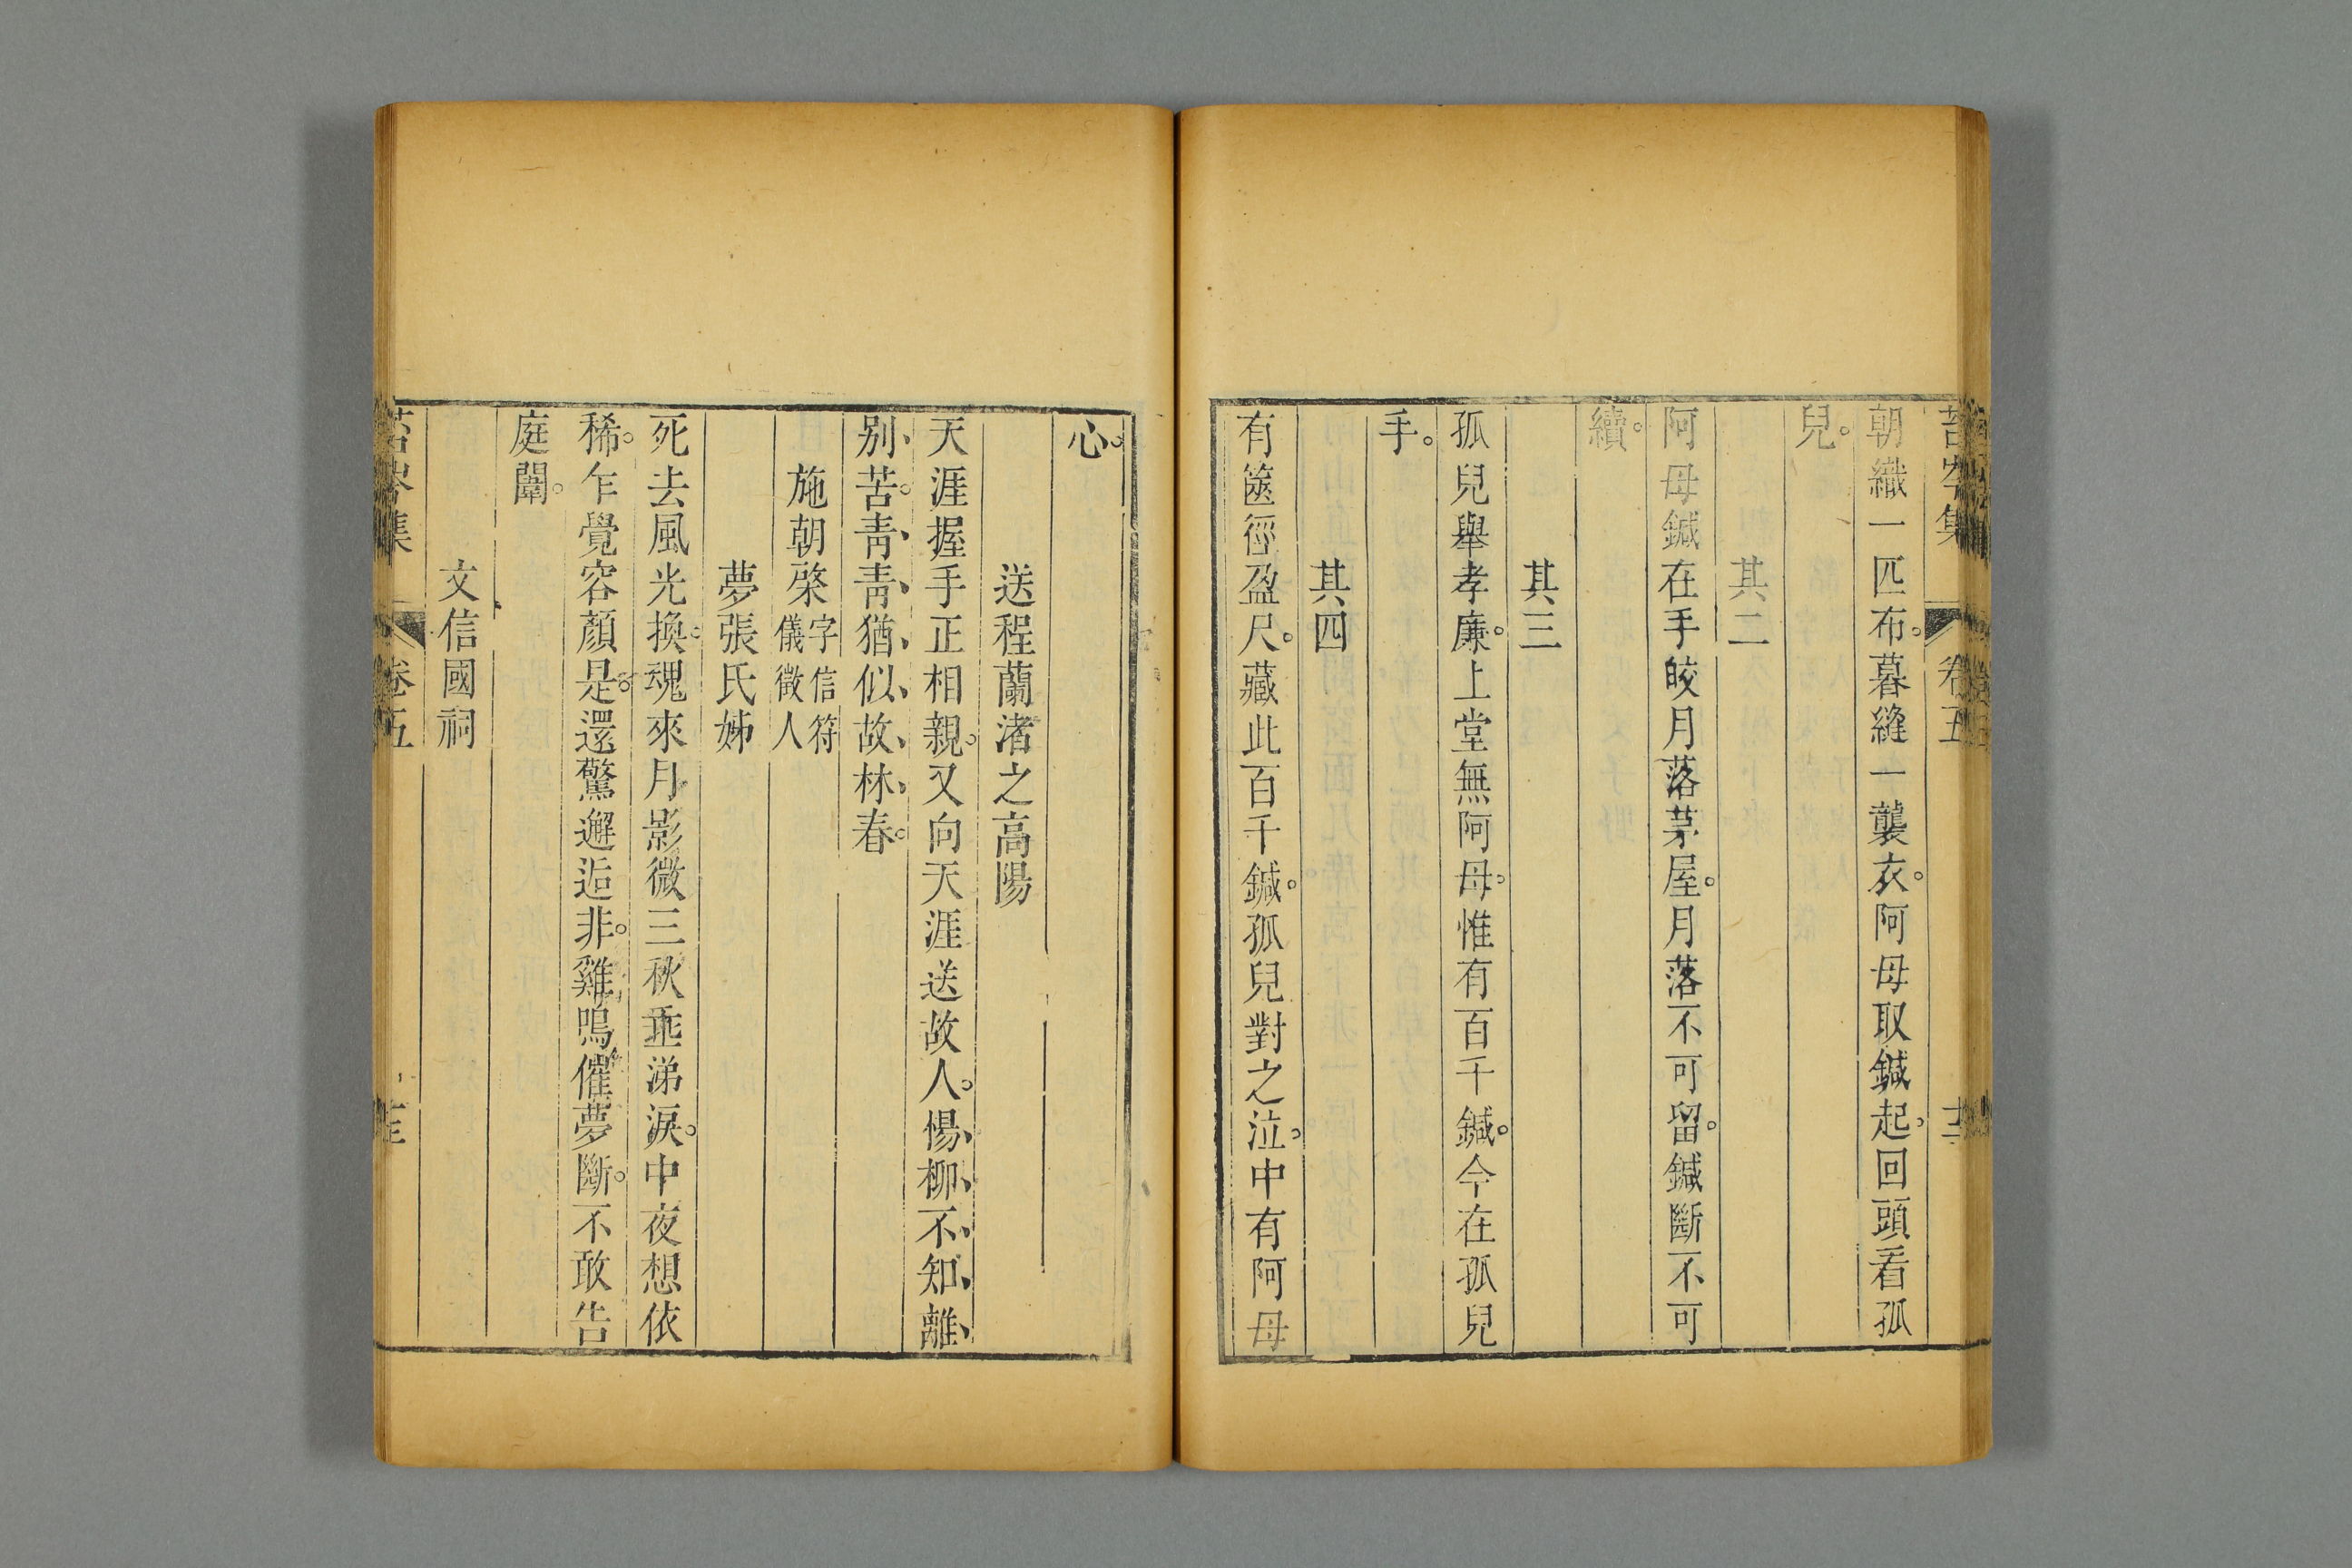 苔岑集 卷五 十三
朝織一匹布。暮縫一襲衣。阿母取鍼起。回頭看孤
兒。
其二
阿母鍼在手皎月落茅屋。月落不可留。鍼斷不可
續。
其三
孤兒舉孝廉。上堂無阿母。惟有百千鍼。今在孤兒
手。
其四
有篋徑盈尺。藏此百千鍼。孤兒對之泣。中有阿母
心。
送程蘭渚之高陽
天涯握手正相親。又向天涯送故人。惕柳不知離
别苦。青青猶似故林春。
施朝棨字信符儀徵人
夢張氏姊
死去風光換。魂來月影微三秋垂涕淚。中夜想依
稀。乍覺容顏是。還驚邂逅非。雞鳴催夢斷。不敢告
庭闈。
文信國祠
苔岑集 卷五